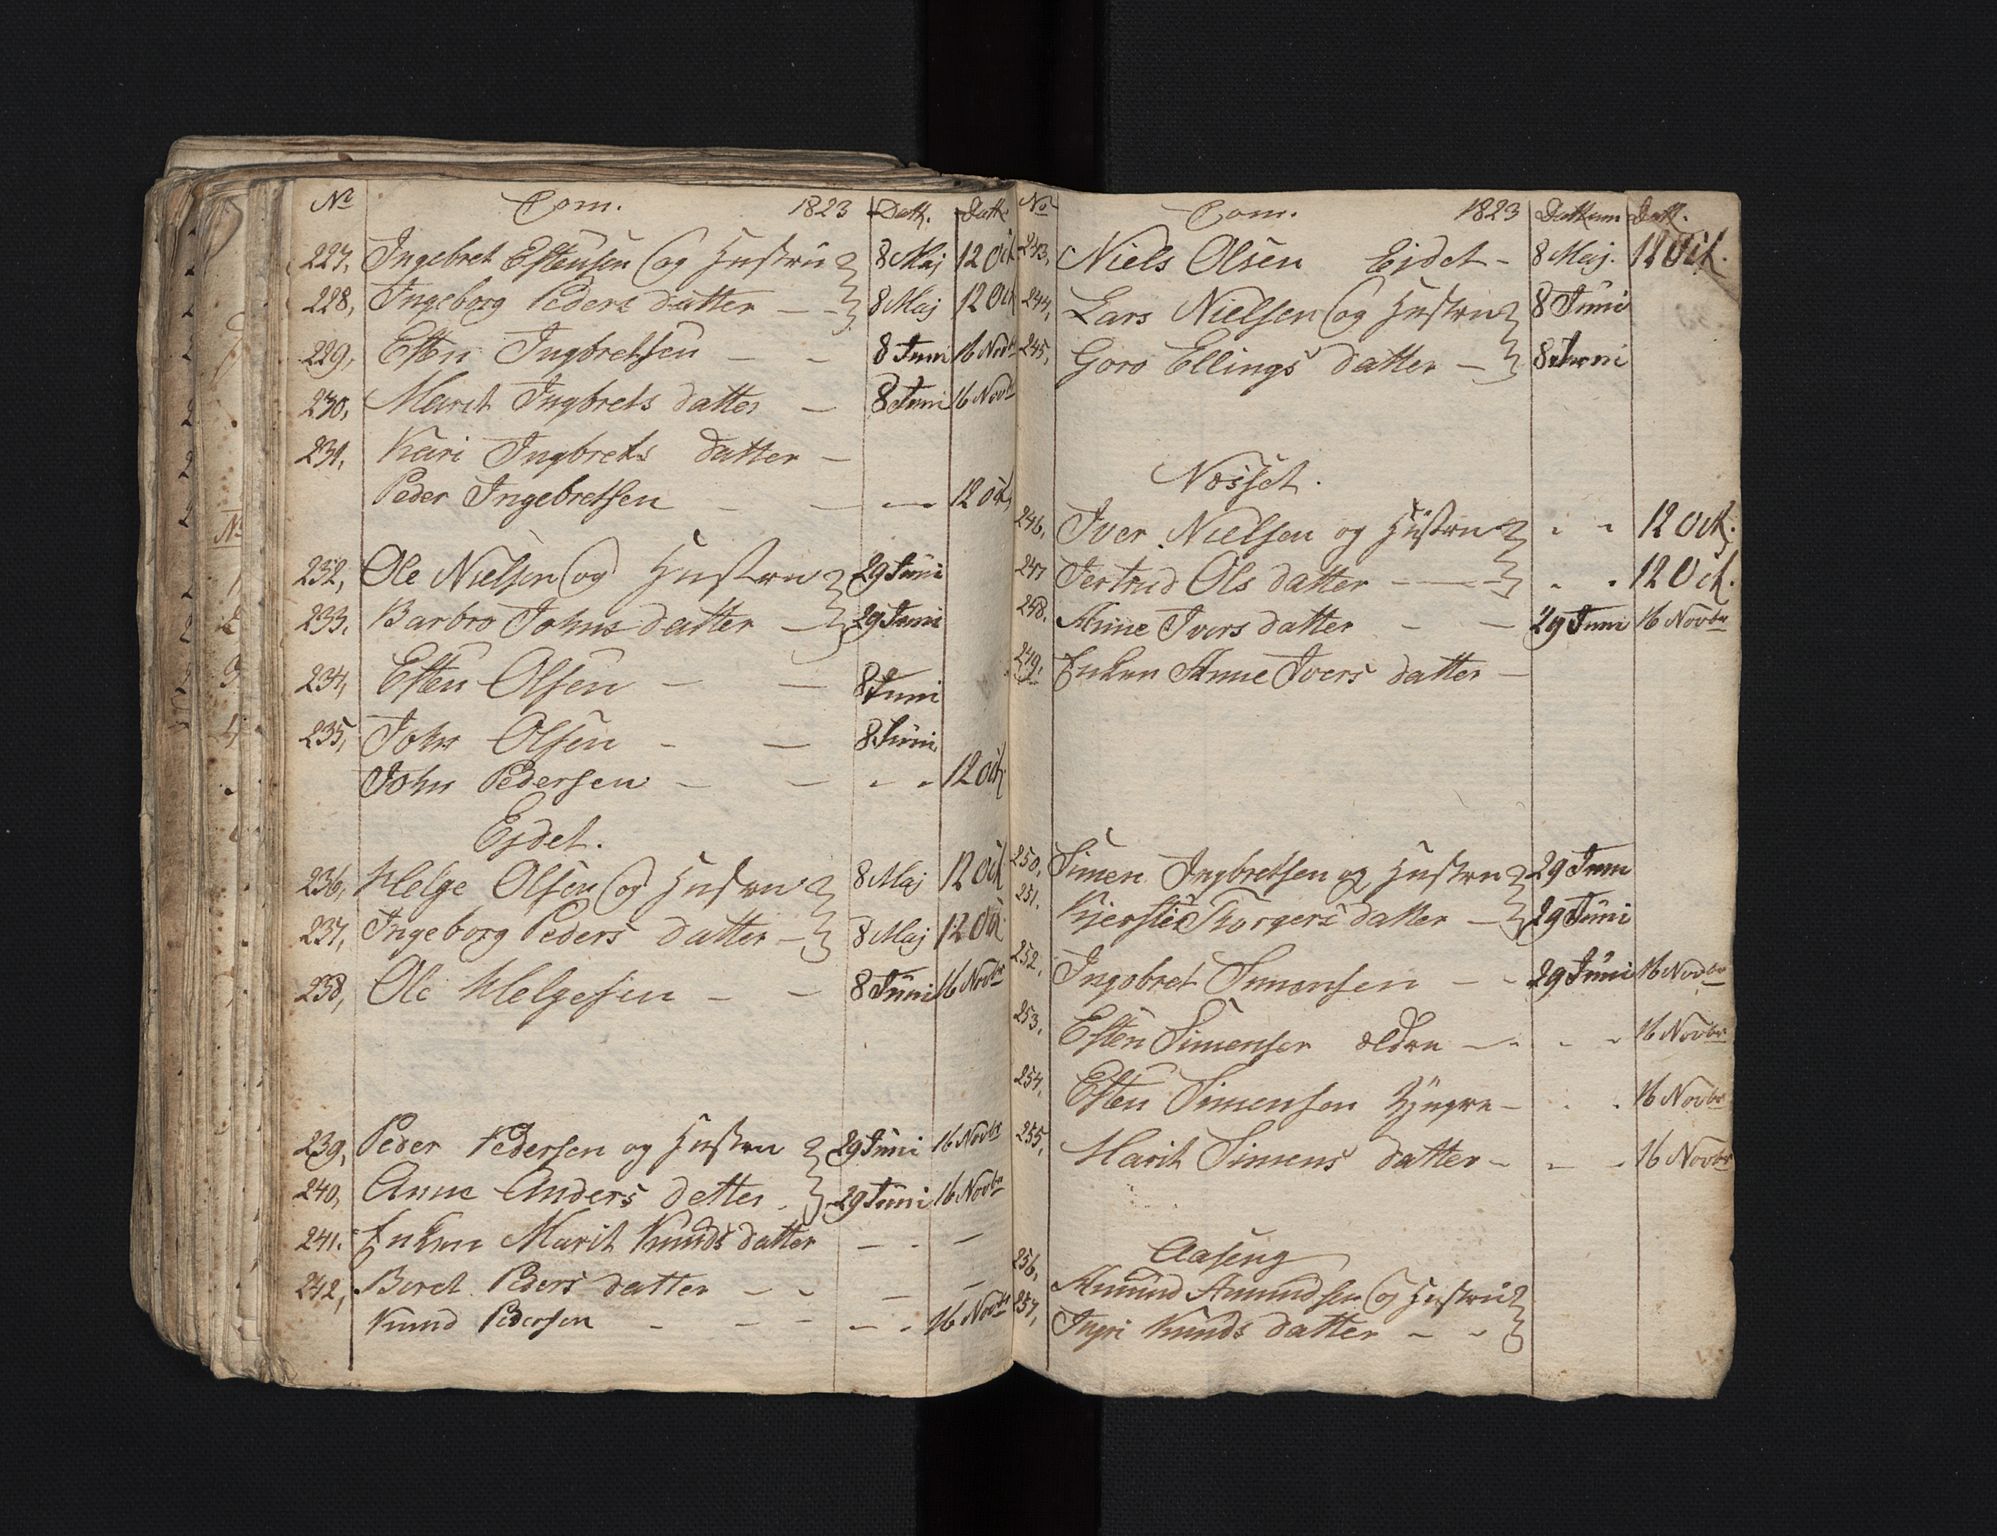 No Com. 1823 Datt. Datt.
227, Ingebret Estensen og Hustru 8 Maj 12 Oct
228, Ingeborg Peders datter - - 8 Maj 12 Oct
229, Esten Ingbretsen - - 8 Juni 16 Novbr
230, Marit Ingbrets datter - 8 Juni 16 Novbr
231, Kari Ingbrets datter -
Peder Ingebretsen - - - - 12 Oct
232, Ole Nielsen og Hustru 29 Juni
233, Barbro Johns datter - 29 Juni
234, Esten Olsen - - 8 Juni
235, John Olsen - - 8 Juni
John Pedersen - - - - 12 Oct
Ejdet.
236, Helge Olsen og Hustru 8 Maj 12 Oct
237, Ingeborg Peders datter - 8 Maj 12 Oct
238, Ole Helgesen - - 8 Juni 16 Novbr
239, Peder Pedersen og Hustru 29 Juni 16 Novbr
240, Anne Anders detter . 29 Juni 16 Novbr
241. Enken Marit Knuds datter - - -
242, Beret Peders datter - - - -
Knud Pedersen - - - - - 16 Novbr
No Com. 1823 Dattum Datt.
243, Niels Olsen Ejdet - 8 Maj. 12 Oct.
244, Lars Nielsen og Hustru 8 Juni
245, Goro Ellings datter - 8 Juni
Næsset.
246, Iver Nielsen og Hustru - - 12 Oct.
247 Jertrud Ols datter - - - - 12 Oct.
248. Anne Ivers datter - - 29 Juni 16 Novbr
249. Enken Anne Ivers datter -
250. Simen Ingbretsen og Hustru 29 Juni
251. Kjersti Thorgers datter - 29 Juni
252. Ingebret Simensen - - 29 Juni 16 Novbr
253. Esten Simensen ældre - - - - 16 Novbr
254. Esten Simensen Yngre - - - 16 Novbr
255, Marit Simens datter - - - 16 Novbr
Aaseng
256, Amund Amundsen og Hustru
257, Ingri Knuds datter - -